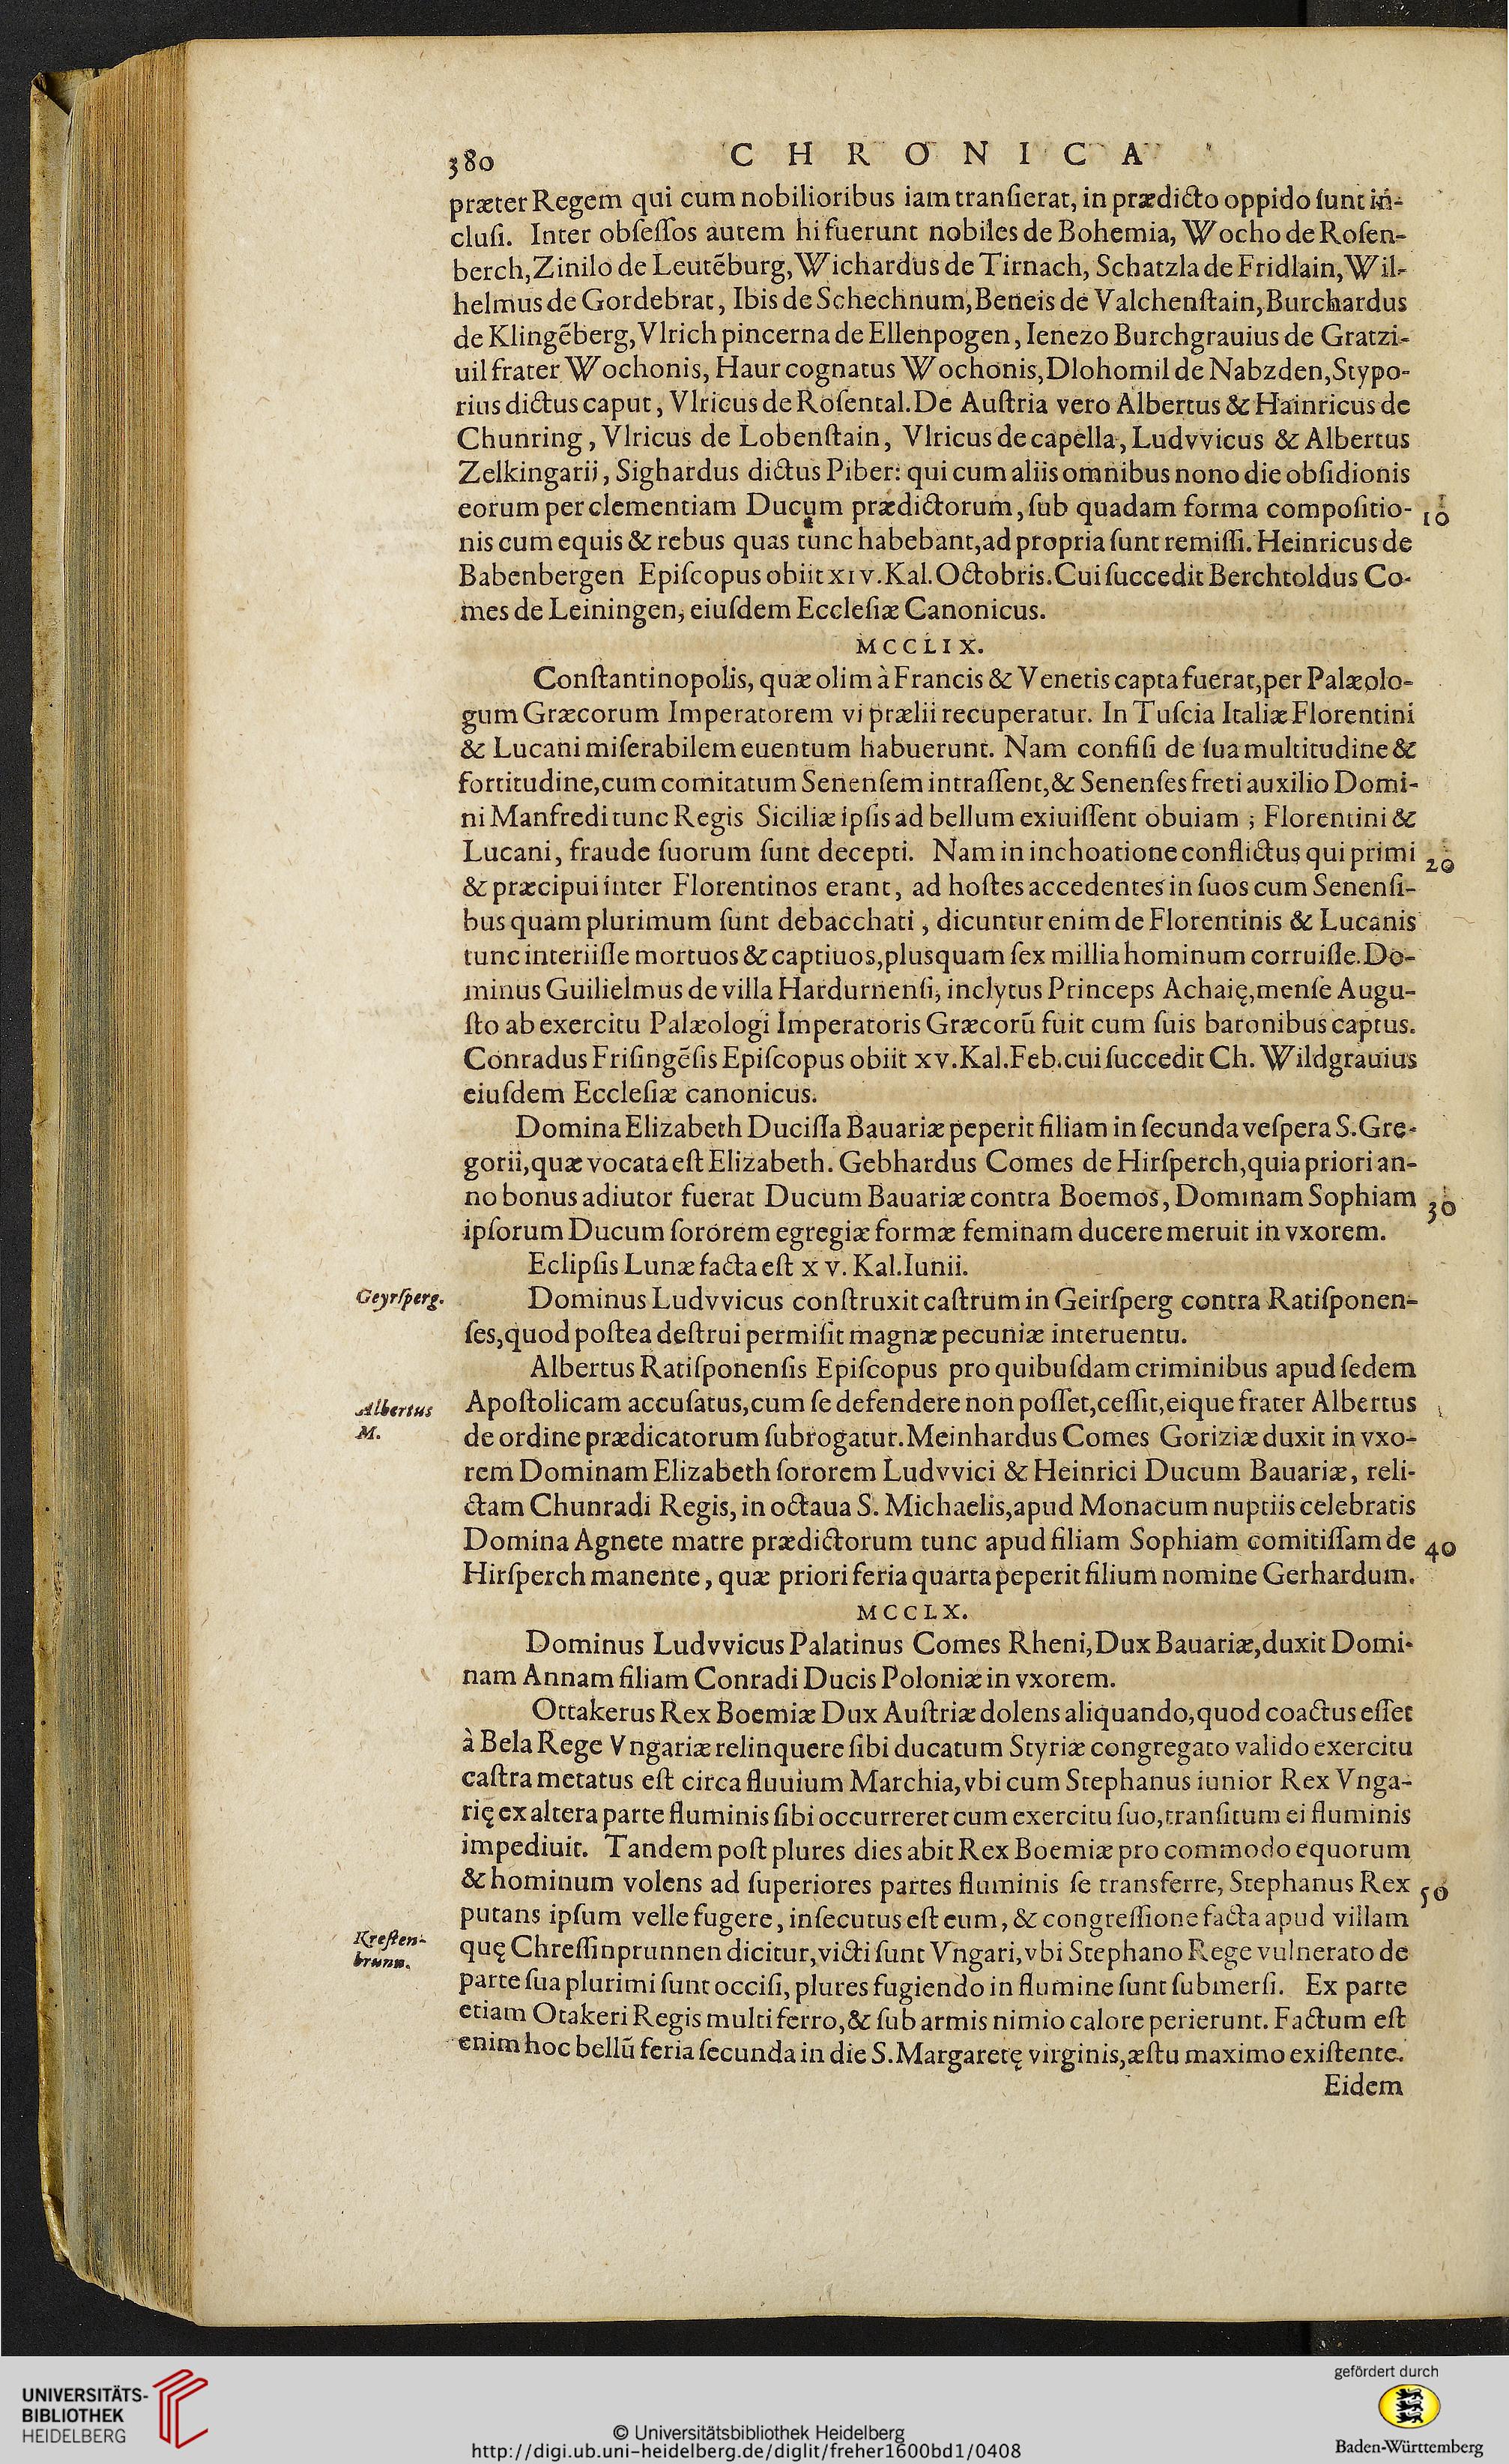 380 CHRONICA
præter Regem qui cum nobilioribus iam tranſierat, in prædicto oppido ſunt in-
cluſi. Inter obſeſſos autem hi fuerunt nobiles de Bohemia, Wocho de Roſen-
berch, Zinilo de Leutẽburg, Wichardus de Tirnach, Schatzla de Fridlain, Wil-
helmus de Gordebrat, Ibis de Schechnum, Beneis de Valchenſtain, Burchardus
de Klingẽberg, Vlrich pincerna de Ellenpogen, Ienezo Burchgrauius de Gratzi-
uil frater Wochonis, Haur cognatus Wochonis, Dlohomil de Nabzden, Stypo-
rius dictus caput, Vlricus de Roſental. De Auſtria vero Albertus & Hainricus de
Chunring, Vlricus de Lobenſtain, Vlricus de capella, Ludvvicus & Albertus
Zelkingarii, Sighardus dictus Piber: qui cum aliis omnibus nono die obſidionis
eorum per clementiam Ducum prædictorum, ſub quadam forma compoſitio- 10
nis cum equis & rebus quas tunc habebant, ad propria ſunt remiſſi. Heinricus de
Babenbergen Epiſcopus obiit XIV. Kal. Octobris. Cui ſuccedit Berchtoldus Co-
mes de Leiningen, eiuſdem Eccleſiæ Canonicus.
MCCLIX.
Conſtantinopolis, quæ olim à Francis & Venetis capta fuerat, per Palæolo-
gum Græcorum Imperatorem vi prælii recuperatur. In Tuſcia Italiæ Florentini
& Lucani miſerabilem euentum habuerunt. Nam confiſi de ſua multitudine &
fortitudine, cum comitatum Senenſem intraſſent, & Senenſes freti auxilio Domi-
ni Manfredi tunc Regis Siciliæ ipſis ad bellum exiuiſſent obuiam ; Florentini &
Lucani, fraude ſuorum ſunt decepti. Nam in inchoatione conflictus qui primi 20
& præcipui inter Florentinos erant, ad hoſtes accedentes in ſuos cum Senenſi-
bus quam plurimum ſunt debacchati, dicuntur enim de Florentinis & Lucanis
tunc interiiſſe mortuos & captiuos, plusquam ſex millia hominum corruiſſe. Do-
minus Guilielmus de villa Hardurnenſi, inclytus Princeps Achaię, menſe Augu-
ſto ab exercitu Palæologi Imperatoris Græcorũ fuit cum ſuis baronibus captus.
Conradus Friſingẽſis Epiſcopus obiit XV. Kal. Feb. cui ſuccedit Ch. Wildgrauius
eiuſdem Eccleſiæ canonicus.
Domina Elizabeth Duciſſa Bauariæ peperit filiam in ſecunda veſpera S. Gre-
gorii, quæ vocata eſt Elizabeth. Gebhardus Comes de Hirſperch, quia priori an-
no bonus adiutor fuerat Ducum Bauariæ contra Boemos, Dominam Sophiam 30
ipſorum Ducum ſororem egregiæ formæ feminam ducere meruit in vxorem.
Eclipſis Lunæ facta eſt XV. Kal. Iunii.
Geyrſperg. Dominus Ludvvicus conſtruxit caſtrum in Geirſperg contra Ratiſponen-
ſes, quod poſtea deſtrui permiſit magnæ pecuniæ interuentu.
Albertus Ratiſponenſis Epiſcopus pro quibuſdam criminibus apud ſedem
Albertus Apoſtolicam accuſatus, cum ſe defendere non poſſet, ceſſit, eique frater Albertus
M. de ordine prædicatorum ſubrogatur. Meinhardus Comes Goriziæ duxit in vxo-
rem Dominam Elizabeth ſororem Ludvvici & Heinrici Ducum Bauariæ, reli-
ctam Chunradi Regis, in octaua S. Michaelis, apud Monacum nuptiis celebratis
Domina Agnete matre prædictorum tunc apud filiam Sophiam comitiſſam de 40
Hirſperch manente, quæ priori feria quarta peperit filium nomine Gerhardum.
MCCLX.
Dominus Ludvvicus Palatinus Comes Rheni, Dux Bauariæ, duxit Domi-
nam Annam filiam Conradi Ducis Poloniæ in vxorem.
Ottakerus Rex Boemiæ Dux Auſtriæ dolens aliquando, quod coactus eſſet
à Bela Rege Vngariæ relinquere ſibi ducatum Styriæ congregato valido exercitu
caſtra metatus eſt circa fluuium Marchia, vbi cum Stephanus iunior Rex Vnga-
rię ex altera parte fluminis ſibi occurreret cum exercitu ſuo, tranſitum ei fluminis
impediuit. Tandem poſt plures dies abit Rex Boemiæ pro commodo equorum
& hominum volens ad ſuperiores partes fluminis ſe transferre, Stephanus Rex 50
putans ipſum velle fugere, inſecutus eſt eum, & congreſſione facta apud villam
Kreſten- quę Chreſſinprunnen dicitur, victi ſunt Vngari, vbi Stephano Rege vulnerato de
brunn. parte ſua plurimi ſunt occiſi, plures fugiendo in flumine ſunt ſubmerſi. Ex parte
etiam Otakeri Regis multi ferro, & ſub armis nimio calore perierunt. Factum eſt
enim hoc bellũ feria ſecunda in die S. Margaretę virginis, æſtu maximo exiſtente.
Eidem
UNIVERSITÄTS-
BIBLIOTHEK
HEIDELBERG
© Universitätsbibliothek Heidelberg
http://digi.ub.uni-heidelberg.de/diglit/freher1600bd1/0408
gefördert durch
Baden-Württemberg